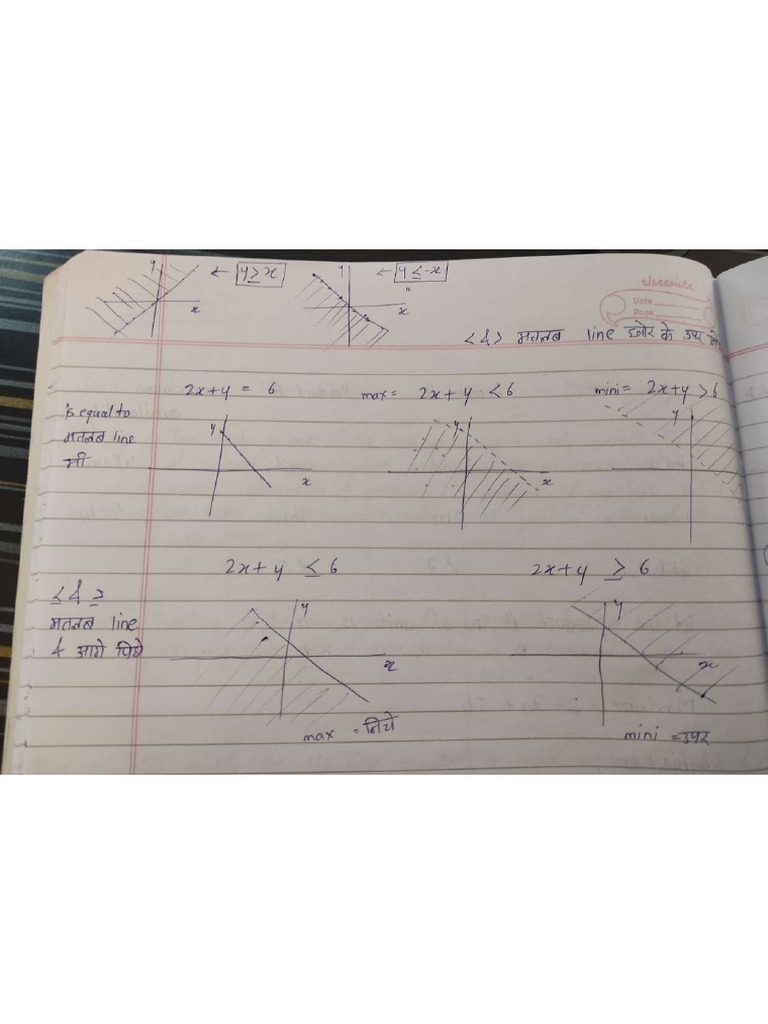 y ← y ≥ x y ← y ≤ -x
x x
classmate
Date
Page
< & > मतलब line छोर के उपर
2x+y = 6 max = 2x+y < 6 mini = 2x+y > 6
is equal to
मतलब line
भी
y y y
x x
2x+y ≤ 6 2x+y ≥ 6
≤ & ≥
मतलब line
& आगे पिछे
y y
x x
max = निचे mini = उपर